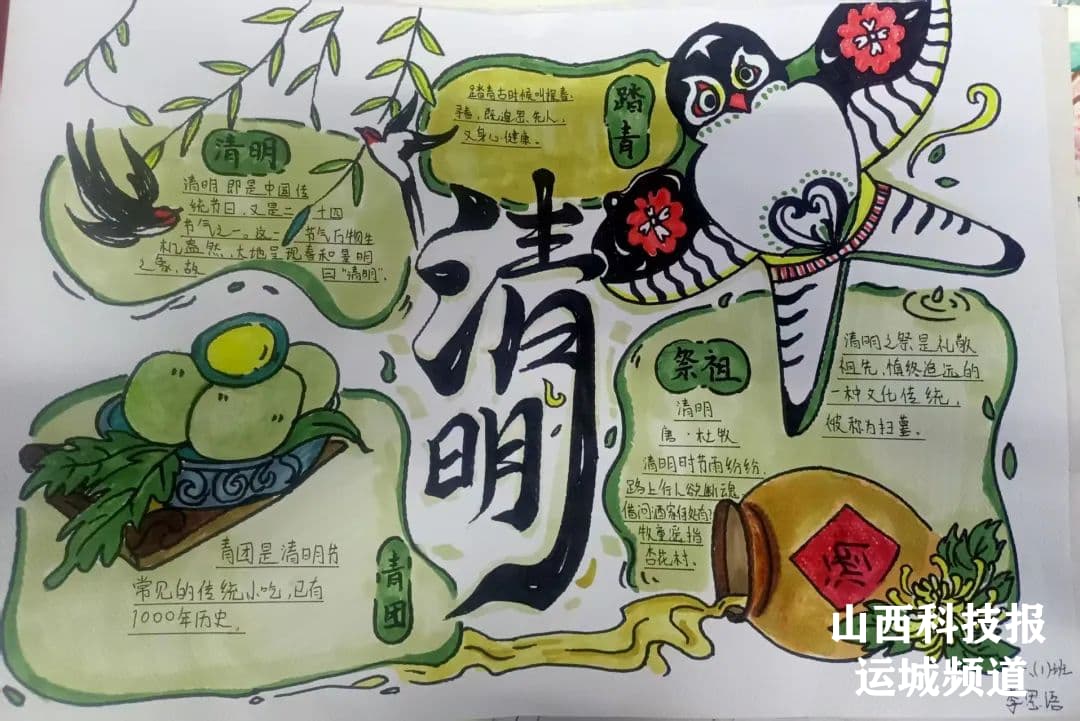 清明
清明即是中国传
统节日，又是二十四
节气之一。这一节气万物生
机盎然，大地呈现春和景明
之象，故曰“清明”.
踏青
踏青古时候叫探春.
寻春，既追思先人，
又身心健康。
清明
祭祖
清明
唐·杜牧
清明时节雨纷纷.
路上行人欲断魂
借问酒家何处有?
牧童遥指
杏花村.
清明之祭是礼敬
祖先，慎终追远的
一种文化传统，
被称为扫墓.
青团
青团是清明节
常见的传统小吃，已有
1000年历史。
酒
山西科技报
运城频道
(1)班
李思语